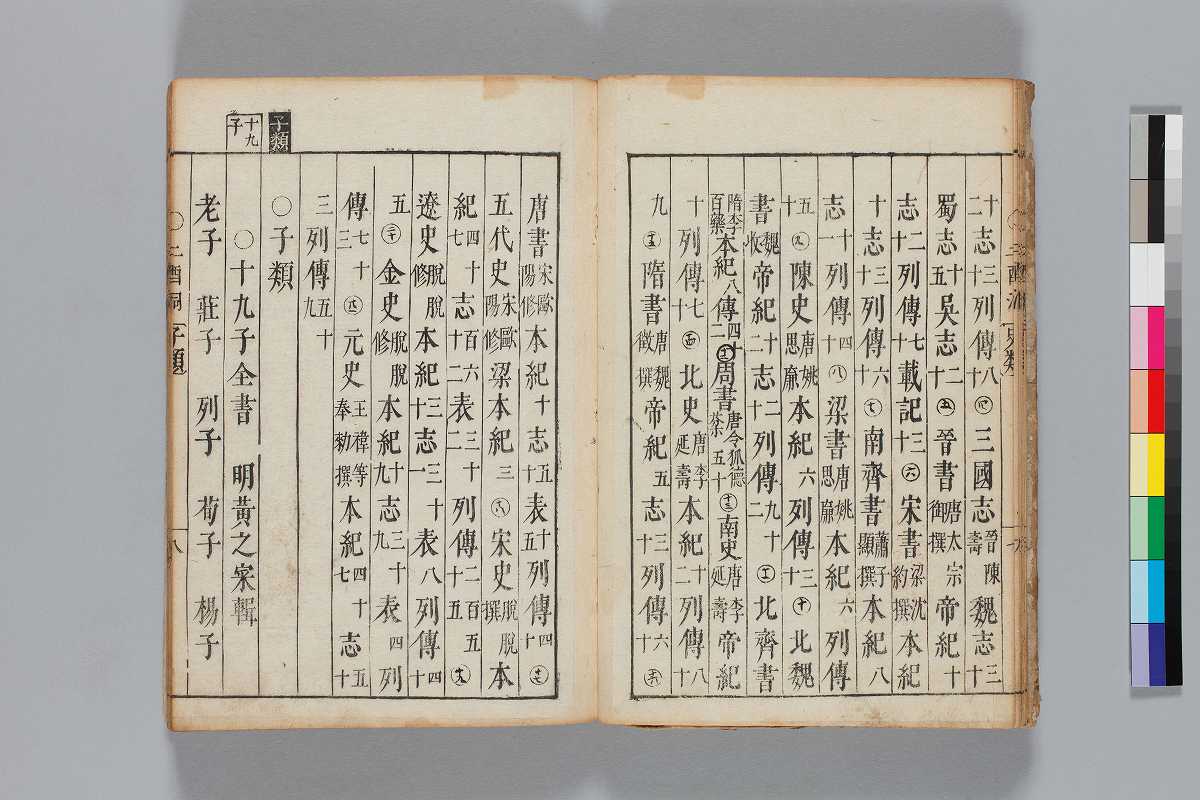 十二志三十列傳八十㊃三國志晉陳壽魏志三十
蜀志十五吳志二十㊄晉書唐太宗御撰帝紀十
志二十列傳七十載記三十㊅宋書梁沈約撰本紀
十志三十列傳六十㊆南齊書蕭子顯撰本紀八
志十一列傳四十㊇梁書唐姚思廉本紀六列傳
五十㊈陳史唐姚思廉本紀六列傳三十㊉北魏
書魏收帝紀十二志二十列傳九十二⑪北齊書
隋李百藥本紀八傳四十二⑫周書唐令狐德棻五十⑬南史唐李延壽帝紀
十列傳七十⑭北史唐李延壽本紀十二列傳八十
九⑮隋書唐魏徵撰帝紀五志三十列傳六十⑯
唐書宋歐陽修本紀十志五十表十五列傳四十⑰
五代史宋歐陽修梁本紀三⑱宋史脫脫撰本
紀四十七志百六十二表三十二列傳二百五十五⑲
遼史脫脫修本紀三十志三十一表八列傳四十
五⑳金史脫脫修本紀十九志三十九表四列
傳七十三元史王禕等奉勅撰本紀四十七志五十
三列傳五十九
子類
〇子類
十九子
〇十九子全書 明黃之寀輯
老子 莊子 列子 荀子 楊子
〇二酉洞 子類 八